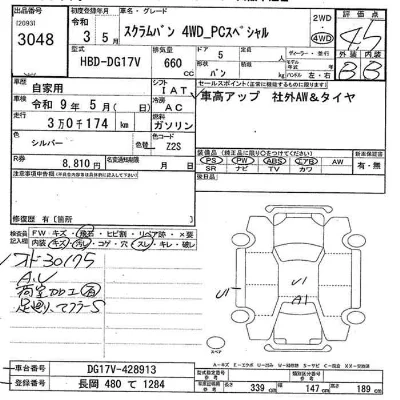 出品番号 初度登録年月 車名・グレード 評価点
[2093] 令和 スクラムバン 4WD_PCスペシャル 2WD
3048 3年 5月 4WD 4.5
型式 排気量 ドア 外装 内装
HBD-DG17V 660 cc 5 バン B B
車歴 自家用 シフト IAT セールスポイント
車検 令和 9年 5月 冷房 AC 車高アップ 社外AW&タイヤ
走行 3万0千174 km 燃料 ガソリン
色 シルバー カラーNo. Z2S
R券 8,810円 名変期限 月 日
装備品
PS PW ABS エアB AW 新車保証書
SR ナビ TV カワ 有・無
注意事項申告欄
修復歴 有[箇所 ]
検査員記入欄 FW キズ・飛石・ヒビ割・リペア跡・X要
内装 キズ・汚レ・コゲ・穴・スレ・キレ・破レ
A.U
荷室加工有
U1 U1 A1
スペア
車台番号 DG17V-428913
登録番号 長岡 480 て 1284
長さ 339 cm 幅 147 cm 高さ 189 cm